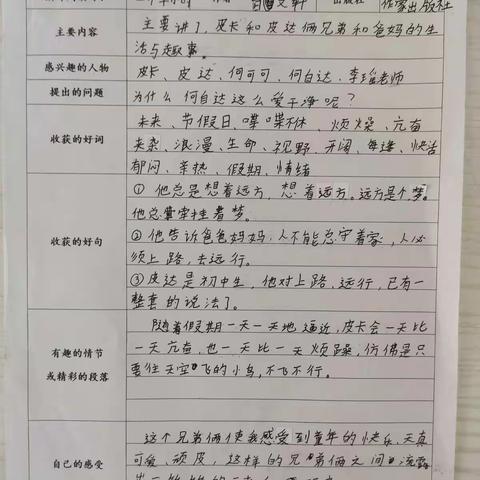 作家出版社
主要内容
主要讲了，皮卡和皮达俩兄弟和爸妈的生
活与趣事。
感兴趣的人物
皮卡、皮达、何可可、何自达、李瑶老师
提出的问题
为什么何自达这么爱干净呢？
收获的好词
未来、节假日、喋喋不休、烦燥、亢奋
夹杂、浪漫、生命、视野、开阔、每逢、快活
郁闷、亲热、假期、情绪
收获的好句
①他总是想着远方，想着远方。远方是个梦。
他总牵挂着梦。
②他告诉爸爸妈妈，人不能总守着家，人必
须上路，去远行。
③皮达是初中生，他对上路，远行，已有一
整套的说法了。
有趣的情节
或精彩的段落
随着假期一天一天地逼近，皮卡会一天比
一天亢奋，也一天比一天烦躁，仿佛是只
要往天空飞的小鸟，不飞不行。
自己的感受
这个兄弟俩使我感受到童年的快乐、天真
可爱、顽皮，这样的兄弟俩之间流露